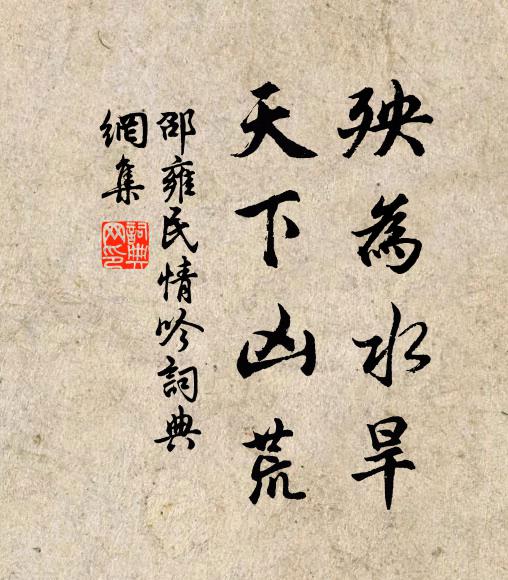 殃為水旱
天下凶荒
邵雍民情吟詞典
網集
詞典网印